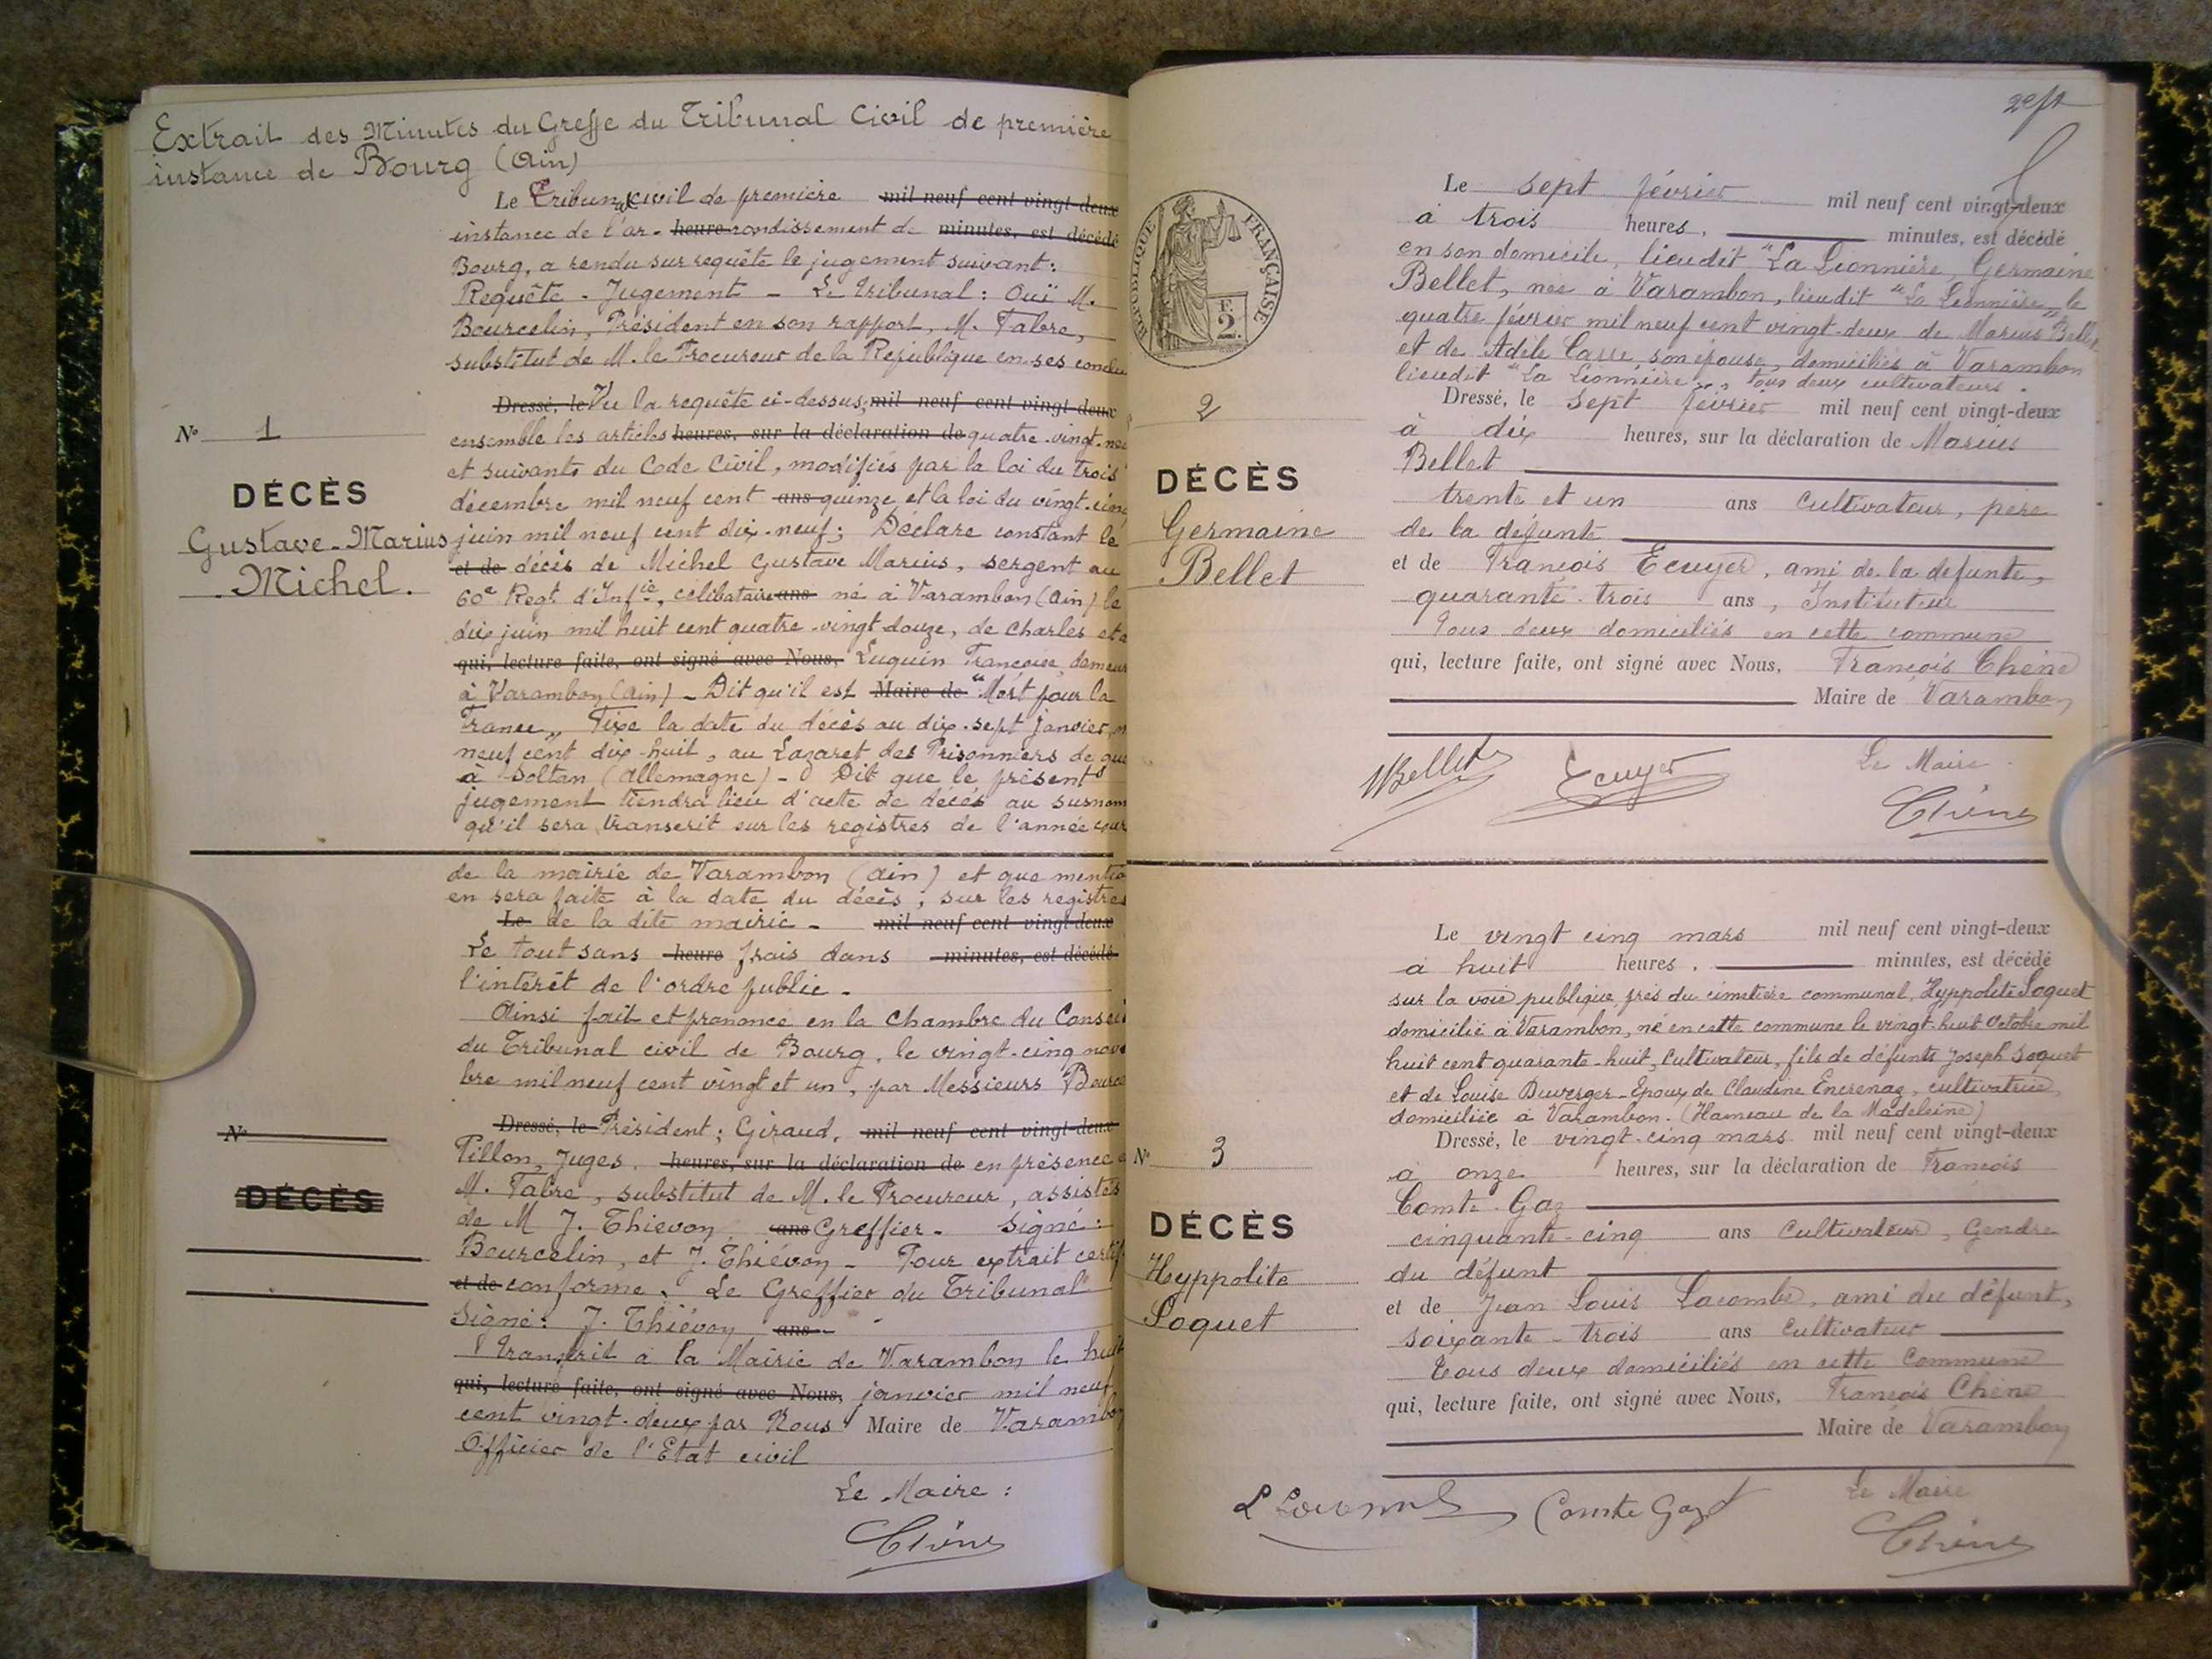 Extrait des Minutes du Greffe du Tribunal Civil de première
instance de Bourg (Ain)
Le Tribunal civil de première mil neuf cent vingt-deux
instance de l'ar- heure rondissement de minutes, est décédé
Bourg, a rendu sur requête le jugement suivant:
Requête - Jugement - Le Tribunal: Ouï M.
Bourcelin, Président en son rapport, M. Fabre,
substitut de M. le Procureur de la République en ses conclu
Dressé, le Vu la requête ci-dessus; mil neuf cent vingt-deux
N° 1
ensemble les articles heures, sur la déclaration de quatre-vingt-neu
et suivants du Code Civil, modifiés par la loi du trois
DÉCÈS
décembre mil neuf cent ans quinze et la loi du vingt-cinq
Gustave-Marius
juin mil neuf cent dix-neuf; Déclare constant le
Michel.
et de décès de Michel Gustave Marius, sergent au
60e Regt d'Infie, célibataire ans né à Varambon (Ain) le
dix juin mil huit cent quatre-vingt douze, de Charles et d
qui, lecture faite, ont signé avec Nous, Luquin Françoise demeur
à Varambon (Ain) - Dit qu'il est Maire de "Mort pour la
France" Fixe la date du décès au dix-sept janvier m
neuf cent dix-huit, au Lazaret des Prisonniers de gue
à Soltan (Allemagne) - Dit que le présent
jugement tiendra lieu d'acte de décès au susnom
qu'il sera transcrit sur les registres de l'année cour
de la mairie de Varambon (Ain) et que mentio
en sera faite à la date du décès, sur les registres
Le de la dite mairie - mil neuf cent vingt-deux
Le tout sans heure frais dans minutes, est décédé
l'intérêt de l'ordre public -
Ainsi fait et prononcé en la Chambre du Conseil
du Tribunal civil de Bourg, le vingt-cinq nove
bre mil neuf cent vingt et un, par Messieurs Bource
Dressé, le Président; Giraud, mil neuf cent vingt-deux
N°
Pillon, Juges, heures, sur la déclaration de en présence d
M. Fabre, substitut de M. le Procureur, assistés
DÉCÈS
de M J. Thiévon, ans Greffier - Signé:
Bourcelin, et J. Thiévon - Pour extrait certif
et de conforme. Le Greffier du Tribunal
Signé: J. Thiévon ans
Transcrit à la Mairie de Varambon le huit
qui, lecture faite, ont signé avec Nous, janvier mil neuf
cent vingt-deux par Nous Maire de Varambon
Officier de l'Etat civil
Le Maire:
Chêne
RÉPUBLIQUE FRANÇAISE
E
2.
Le sept février mil neuf cent vingt-deux
à trois heures, minutes, est décédé
en son domicile, lieudit "La Lionnière, Germaine
Bellet, née à Varambon, lieudit "La Lionnière" le
quatre février mil neuf cent vingt-deux de Marius Bellet
et de Adèle Carre son épouse, domiciliés à Varambon
lieudit "La Lionnière", tous deux cultivateurs.
Dressé, le sept février mil neuf cent vingt-deux
2
à dix heures, sur la déclaration de Marius
Bellet
DÉCÈS
trente et un ans cultivateur, père
Germaine
de la défunte
Bellet
et de François Ecuyer, ami de la défunte,
quarante-trois ans, Instituteur
Tous deux domiciliés en cette commune
qui, lecture faite, ont signé avec Nous, François Chêne
Maire de Varambon
MBellet Ecuyer Le Maire
Chêne
Le vingt cinq mars mil neuf cent vingt-deux
à huit heures, minutes, est décédé
sur la voie publique près du cimetière communal, Hyppolite Soquet
domicilié à Varambon, né en cette commune le vingt-huit Octobre mil
huit cent quarante-huit, Cultivateur, fils de défunts Joseph Soquet
et de Louise Duverger - Epoux de Claudine Encrenaz, cultivatrice,
domiciliée à Varambon. (Hameau de la Madeleine)
Dressé, le vingt-cinq mars mil neuf cent vingt-deux
N° 3
à onze heures, sur la déclaration de François
Comte-Gaz
DÉCÈS
cinquante-cinq ans cultivateur, Gendre
Hyppolite
du défunt
Soquet
et de Jean Louis Lacombe, ami du défunt,
soixante-trois ans cultivateur
Tous deux domiciliés en cette Commune
qui, lecture faite, ont signé avec Nous, François Chêne
Maire de Varambon
L Lacombe Comte Gaz Le Maire
Chêne